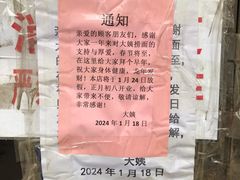 通知
亲爱的顾客朋友们，感谢
大家一年来对大姨措面的
支持与厚爱。春节将至，
在这里给大家拜个早年，
祝大家身体健康，龙年发
财！本店将于 1 月 24 日放
假，正月初八开业，给大
家带来不便，敬请谅解，
非常感谢！
大姨
2024 年 1 月 18 日
谢
面
至，
发
日
给
解，
大姨
2024 年 1 月 18 日